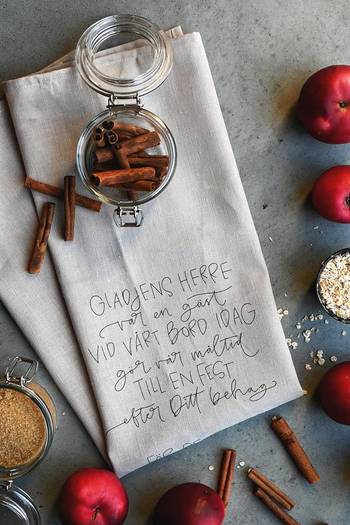 GLÄDJENS HERRE
var en gäst
VID VÅRT BORD IDAG
gör vår måltid
TILL EN FEST
efter Ditt behag